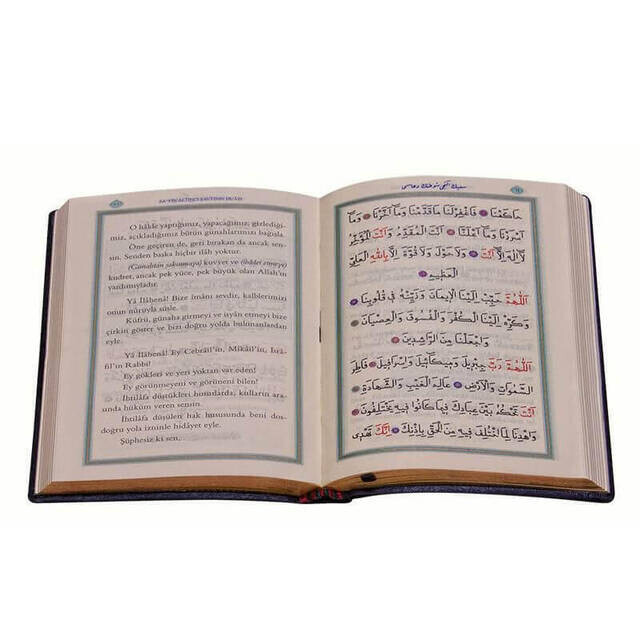 SA'YİN ALTINCI ŞAVTININ DUÂSI
O hâlde yaptığımız, yapacağımız; gizlediği-
miz, açıkladığımız bütün günahlarımızı bağışla.
Öne geçiren de, geri bırakan da ancak sen-
sin. Senden başka hiçbir ilâh yoktur.
(Günahtan sakınmaya) kuvvet ve (ibâdet etmeye)
kudret, ancak pek yüce, pek büyük olan Allah'ın
yardımıyladır.
Yâ İlâhenâ! Bize îmânı sevdir, kalblerimizi
onun nûruyla süsle.
Küfrü, günaha girmeyi ve isyân etmeyi bize
çirkin göster ve bizi doğru yolda bulunanlardan
eyle.
Yâ İlâhenâ! Ey Cebrâîl'in, Mîkâîl'in, İsrâ-
fîl'in Rabbi!
Ey gökleri ve yeri yoktan var eden!
Ey görünmeyeni ve görüneni bilen!
İhtilâfa düştükleri hususlarda, kulların ara-
sında hüküm veren sensin.
İhtilâfa düşülen hak hususunda beni dos-
doğru yola izninle hidâyet eyle.
Şüphesiz ki sen,
حَاكَمْنَا فَاغْفِرْلَنَا مَاقَدَّمْنَا وَمَآ اَخَّرْنَا وَمَآ
اَسْرَرْنَا وَمَآ اَعْلَنَّا اَنْتَ الْمُقَدِّمُ وَاَنْتَ الْمُؤَخِّرُ
لَآ اِلٰهَ اِلَّآ اَنْتَ وَلَاحَوْلَ وَلَاقُوَّةَ اِلَّا بِاللّٰهِ الْعَلِيِّ
الْعَظِيمِ
اَللّٰهُمَّ حَبِّبْ اِلَيْنَا الْاِيمَانَ وَزَيِّنْهُ فِي قُلُوبِنَا
وَكَرِّهْ اِلَيْنَا الْكُفْرَ وَالْفُسُوقَ وَالْعِصْيَانَ
وَاجْعَلْنَا مِنَ الرَّاشِدِينَ
اَللّٰهُمَّ رَبَّ جِبْرِيلَ وَمِيكَائِيلَ وَاِسْرَافِيلَ فَاطِرَ
السَّمٰوَاتِ وَالْاَرْضِ عَالِمَ الْغَيْبِ وَالشَّهَادَةِ
اَنْتَ تَحْكُمُ بَيْنَ عِبَادِكَ فِيمَا كَانُوا فِيهِ يَخْتَلِفُونَ
وَاهْدِنَا لِمَا اخْتُلِفَ فِيهِ مِنَ الْحَقِّ بِاِذْنِكَ اِنَّكَ تَهْدِى